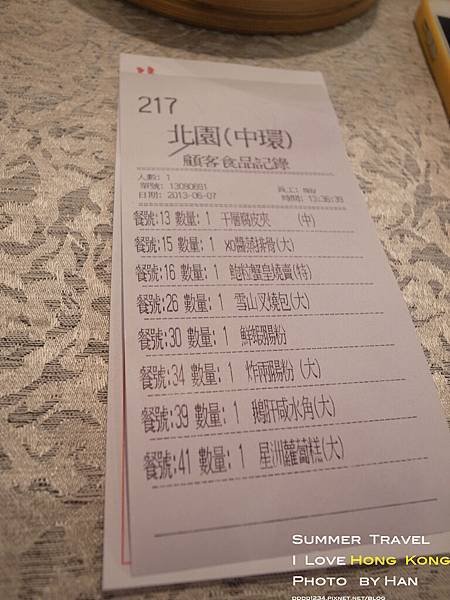 217
北園(中環)
顧客食品記錄
人數: 1
單號: 13080691
員工: may
日期: 2013-06-07
時間: 13:36:39
餐號:13 數量: 1 千層腐皮夾 (中)
餐號:15 數量: 1 xo醬蒸排骨(大)
餐號:16 數量: 1 鮑粒蟹皇燒賣(特)
餐號:26 數量: 1 雪山叉燒包(大)
餐號:30 數量: 1 鮮蝦腸粉
餐號:34 數量: 1 炸兩腸粉 (大)
餐號:39 數量: 1 鵝肝咸水角(大)
餐號:41 數量: 1 星洲蘿蔔糕(大)
Summer Travel
I Love Hong Kong
Photo by Han
dodo1234.pixnet.net/blog